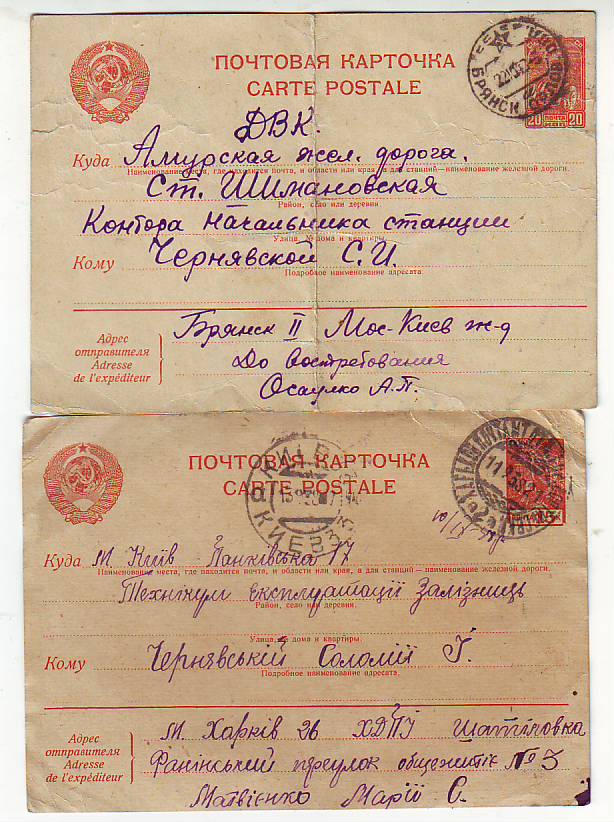 ПОЧТОВАЯ КАРТОЧКА
CARTE POSTALE
БРЯНСК
ПОЧТА
20 КОП 20
ДВК.
Куда Амурская жел. дорога.
Наименование места, где находится почта, и области или края, а для станций—наименование железной дороги.
Ст. Шимановская
Район, село или деревня.
Контора начальника станции
Улица, № дома и квартиры.
Кому Чернявской С.И.
Подробное наименование адресата
Адрес отправителя
Adresse de l'expéditeur
Брянск II Мос-Киев ж-д
До востребования
Осаулко А.П.
ПОЧТОВАЯ КАРТОЧКА
CARTE POSTALE
КИЇВ
КИЕВ
Куда м. Київ Паньківська 17
Наименование места, где находится почта, и области или края, а для станций—наименование железной дороги.
Технікум Експлуатації Залізниць
Район, село или деревня.
Улица, № дома и квартиры.
Кому Чернявській Соломії І.
Подробное наименование адресата.
Адрес отправителя
Adresse de l'expéditeur
м. Харків 26 ХДПУ Шатилівка
переулок общежитіє № 5
Матвієнко Марії С.